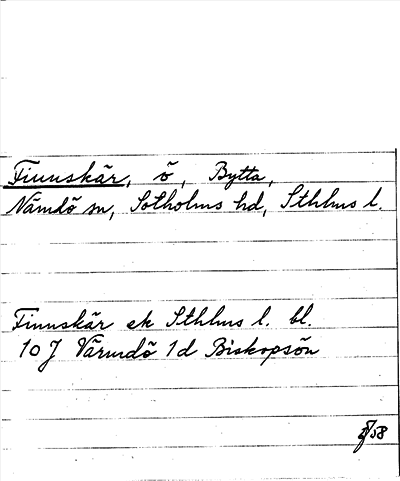 Finnskär, ö, Bytta,
Nämdö sn, Sotholms hd, Sthlms l.
Finnskär ek Sthlms l. bl.
10 J Värmdö 1d Biskopsön
58